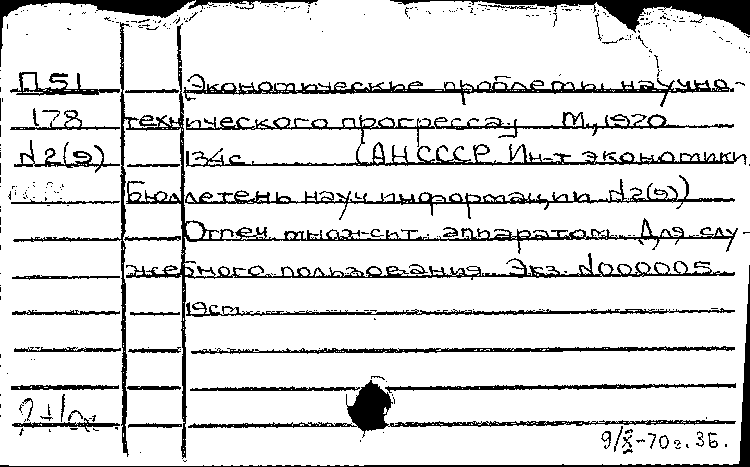 П51 Экономические проблемы научно-
178 технического прогресса, М., 1970
N2(9) 134с. (АН СССР. Ин-т экономики
Бюллетень науч. информации N2(9))
Отпеч. множит. аппаратом. Для слу-
жебного пользования. Экз. N000005
19см
9/X-70г. ЗБ.